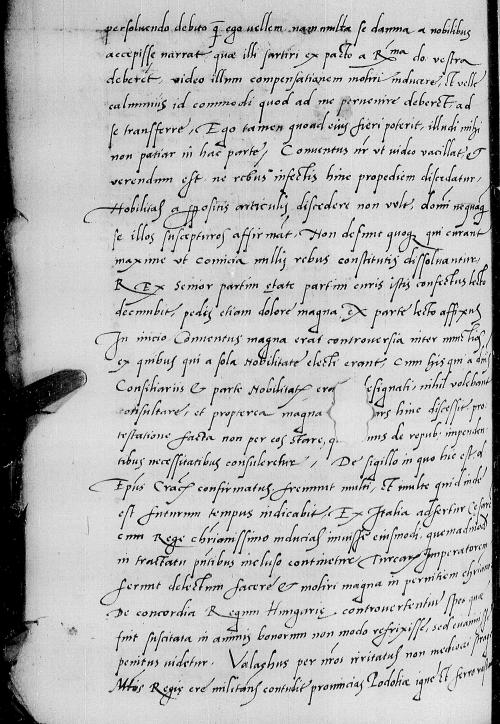 persoluendo debito q ego vellem, nam multa se damna a nobilibus
accepisse narrat, quae illi sartiri ex pacto a Rma do. vestra
deberet, video illum compensationem moliri inducere, Et velle
id commodi quod ad me pervenire deberet, ad
se transferre, Ego tamen quoad eius fieri poterit, illudi mihi
non patiar in hac parte, Conventus nr ut video vacillat, et
verendum est, ne rebus infectis hinc propediem discedatur,
Nobilitas a propositis articulis discedere non vult, domi nequaq
se illos suscepturos affirmat, Non desunt quoq qui curant
maxime ut comicia nullis rebus constitutis dissolvantur,
R Ex Senior partim etate partim curis istis confectus lecto
decumbit, pedis etiam dolore magna ex parte lecto affixus
In inicio Conventus magna erat controversia inter
ex quibus qui a sola Nobilitate electi erant, Cum his qui a
Consiliariis & parte Nobilitat era esignati, nihil volebant
consultare, et propterea magna rs hinc discessit, pro
testatione facta non per eos stare, q us de repub. impenden
tibus necessitatibus consuleretur, De sigillo in quo hic est
Epus Crac confirmatus fremunt multi, Et multe quid inde
est futurum tempus indicabit, Ex Italia adfertur Cesare
cum Rege chrianissimo inducias inuisse eiusmodi, quemadmod
in tractatu pntibus incluso continetur, Turcar Imperatorem
ferunt delectum facere & moliri magna in perniciem chriano
De concordia Regum Hungariae controvertentiu spes quae
fuit suscitata in animis bonorum non modo refrixisse, sed
penitus videtur. Valachus per nros irritatus non mediocri
Mtis Regie ere militans contudit provincias Podoliae igne Et ferro